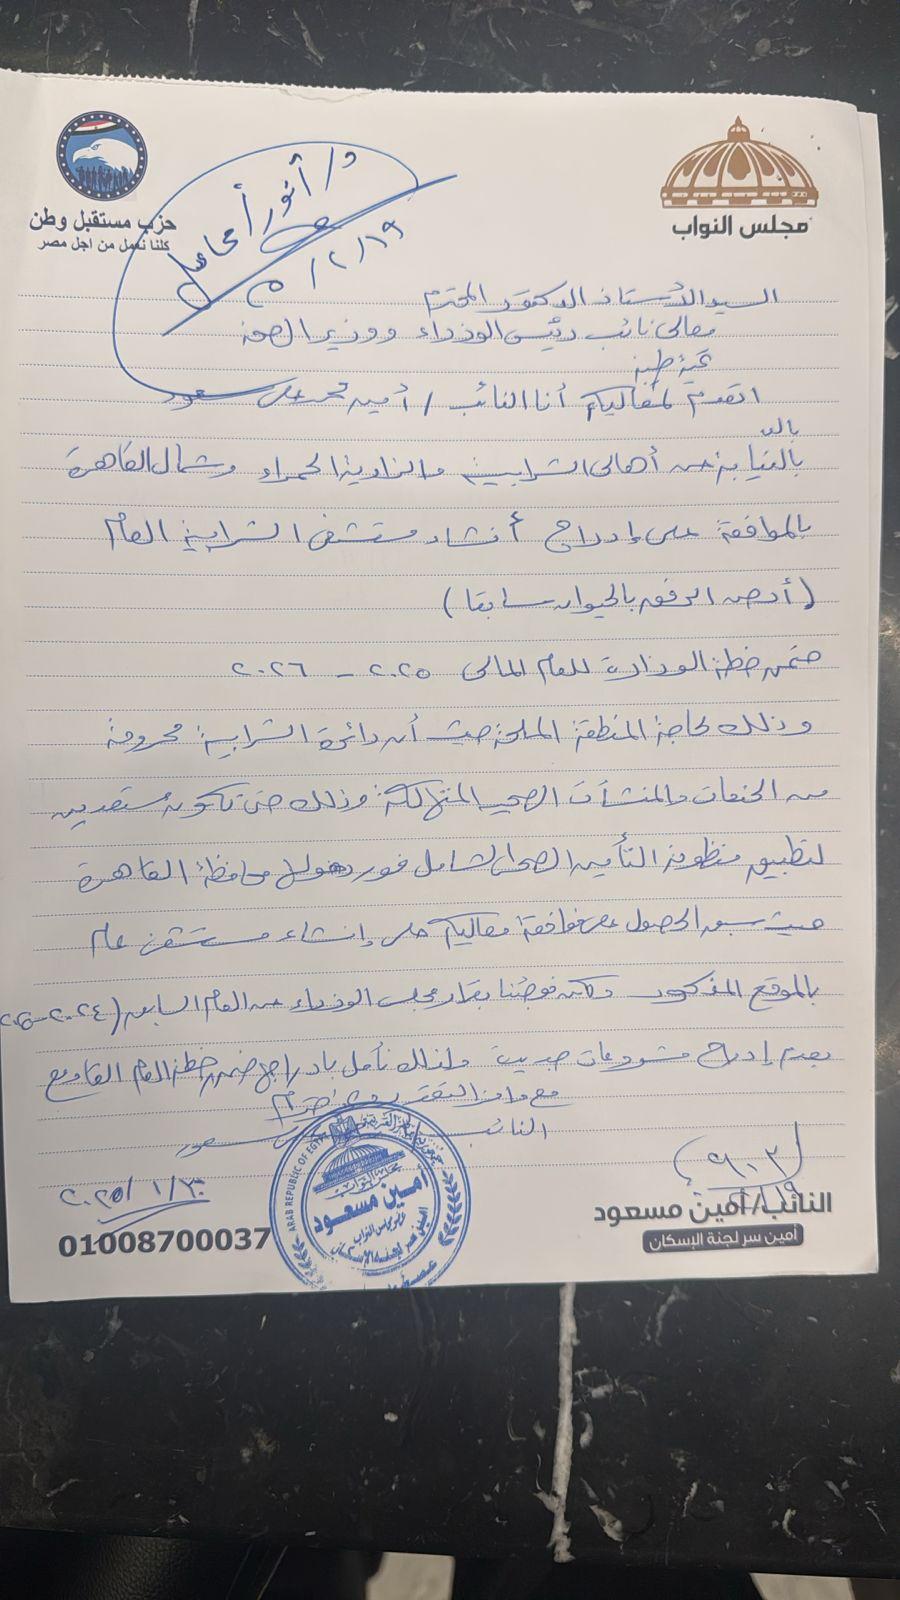 حزب مستقبل وطن
كلنا نعمل من اجل مصر
مجلس النواب
د/ أنور
١٩/٢/
السيد الأستاذ الدكتور المحترم
معالى نائب رئيس الوزراء ووزير الصحة
تحية طيبة
اتقدم لمعاليكم أنا النائب / أمين محمد مسعود
بالنيابة عن أهالى الشرابية والزاوية الحمراء وشمال القاهرة
بالموافقة على إدراج أنشاء مستشفى الشرابية العام
( أرض سابقا )
ضمن خطة الوزارة للعام المالى ٢٠٢٥ - ٢٠٢٦
وذلك لحاجة المنطقة الملحة حيث أن دائرة الشرابية محرومة
من الخدمات والمنشآت الصحية المتهالكة وذلك حتى نكون مستعدين
لتطبيق منظومة التأمين الصحى الشامل فور دخول محافظة القاهرة
حيث سبق الحصول على موافقة معاليكم على إنشاء مستشفى عام
بالموقع المذكور ولكن فوجئنا بقرار مجلس الوزراء عن العام السابق (٢٠٢٤-
بعدم إدراج مشروعات جديدة ولذلك نأمل بادراجها ضمن خطة العام القادم
مع وافر التقدير والاحترام
النائب
مسعود
٢٠٢٥/١/٣٠
01008700037
ARAB REPUBLIC OF EGYPT
مجلس النواب
أمين مسعود
أمين سر لجنة الإسكان
النائب/ أمين مسعود
أمين سر لجنة الإسكان